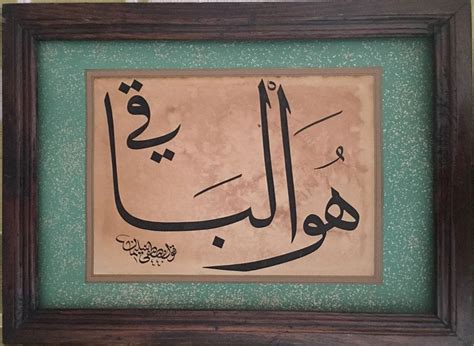 هُوَ الْبَاقي